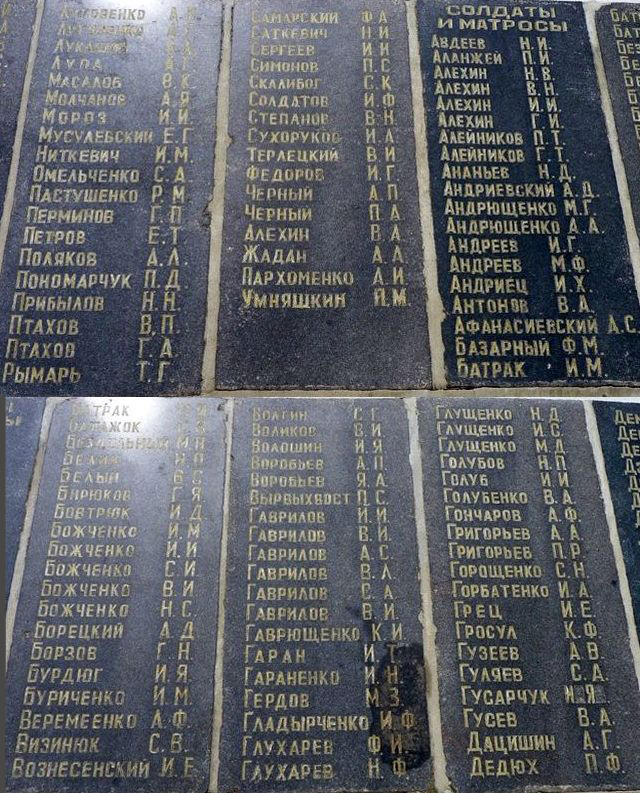 Литовенко А.
Лукацкий
Лупа А.Г.
Масалов В.К.
Молчанов А.Я.
Мороз И.И.
Мусулевский Е.Г.
Ниткевич И.М.
Омельченко С.А.
Пастушенко Р.М.
Перминов Г.П.
Петров Е.Т.
Поляков А.Л.
Пономарчук П.Д.
Прибылов Н.Н.
Птахов В.П.
Птахов Г.А.
Рымарь Т.Г.
Самарский Ф.А.
Саткевич Н.И.
Сергеев И.И.
Симонов П.С.
Склибог С.К.
Солдатов И.Ф.
Степанов В.Н.
Сухоруков И.А.
Терлецкий В.И.
Федоров И.Г.
Черный А.П.
Черный П.А.
Алехин В.А.
Жадан А.А.
Пархоменко А.И.
Умняшкин П.М.
СОЛДАТЫ
И МАТРОСЫ
Авдеев Н.И.
Аланжей П.И.
Алехин Н.В.
Алехин В.Н.
Алехин И.И.
Алехин Г.И.
Алейников П.Т.
Алейников Г.Т.
Ананьев Н.Д.
Андриевский А.Д.
Андрющенко М.Г.
Андрющенко А.А.
Андреев И.Г.
Андреев М.Ф.
Андриец И.Х.
Антонов В.А.
Афанасиевский А.С.
Базарный Ф.М.
Батрак И.М.
Батрак
Батажок
Бездольный М.П.
Белик
Белый В.С.
Бирюков Г.Я.
Бовтрюк И.Д.
Божченко И.М.
Божченко И.И.
Божченко С.И.
Божченко В.И.
Божченко Н.С.
Борецкий А.Д.
Борзов Г.Н.
Бурдюг И.Я.
Буриченко И.М.
Веремеенко А.Ф.
Визинюк С.В.
Вознесенский И.Е.
Волгин С.Г.
Воликов В.И.
Волошин И.Я.
Воробьев А.П.
Воробьев Я.А.
Вырвыхвост П.С.
Гаврилов И.И.
Гаврилов В.И.
Гаврилов А.С.
Гаврилов В.Л.
Гаврилов С.А.
Гаврилов В.И.
Гаврющенко К.И.
Гаран И.Т.
Гараненко И.Н.
Гердов М.З.
Гладырченко И.Ф.
Глухарев Ф.И.
Глухарев Н.Ф.
Глущенко Н.Д.
Глущенко И.С.
Глущенко М.Д.
Голубов Н.П.
Голуб И.И.
Голубенко В.А.
Гончаров А.Ф.
Григорьев А.А.
Григорьев П.Р.
Горощенко С.Н.
Горбатенко И.А.
Грец И.Е.
Гросул К.Ф.
Гузеев А.В.
Гуляев С.А.
Гусарчук И.Я.
Гусев В.А.
Дацишин А.Г.
Дедюх П.Ф.